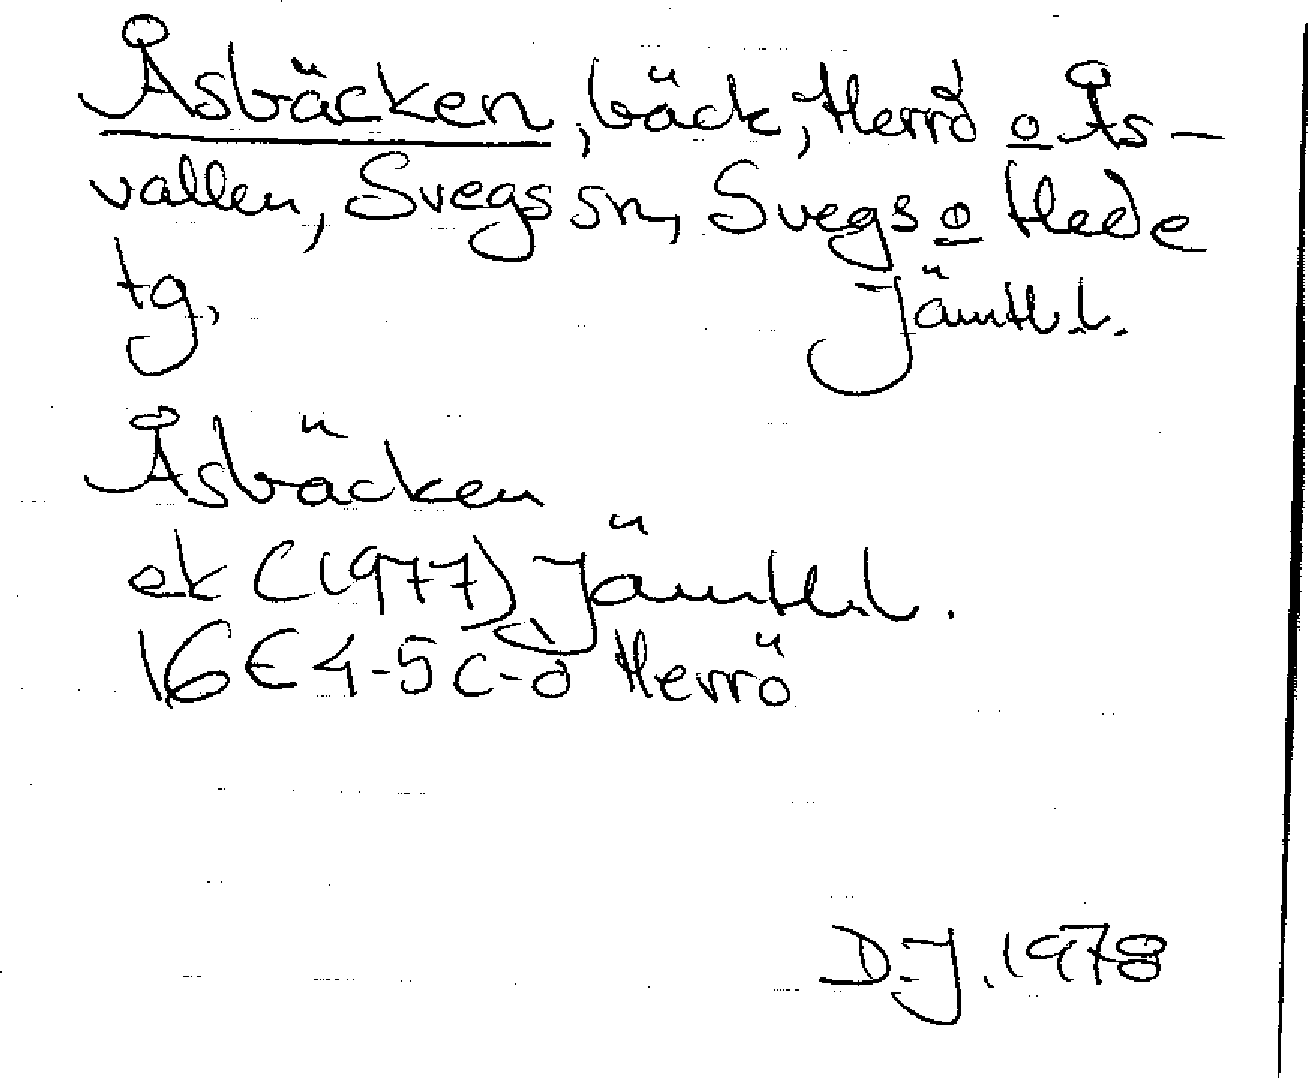 Åsbäcken, bäck, Herrö o Ås-
vallen, Svegs sn, Svegs o Hede
tg,
Jämtl.l.
Åsbäcken
ek (1977) Jämtl.l.
16E 4-5 c-d Herrö
D.J. 1978